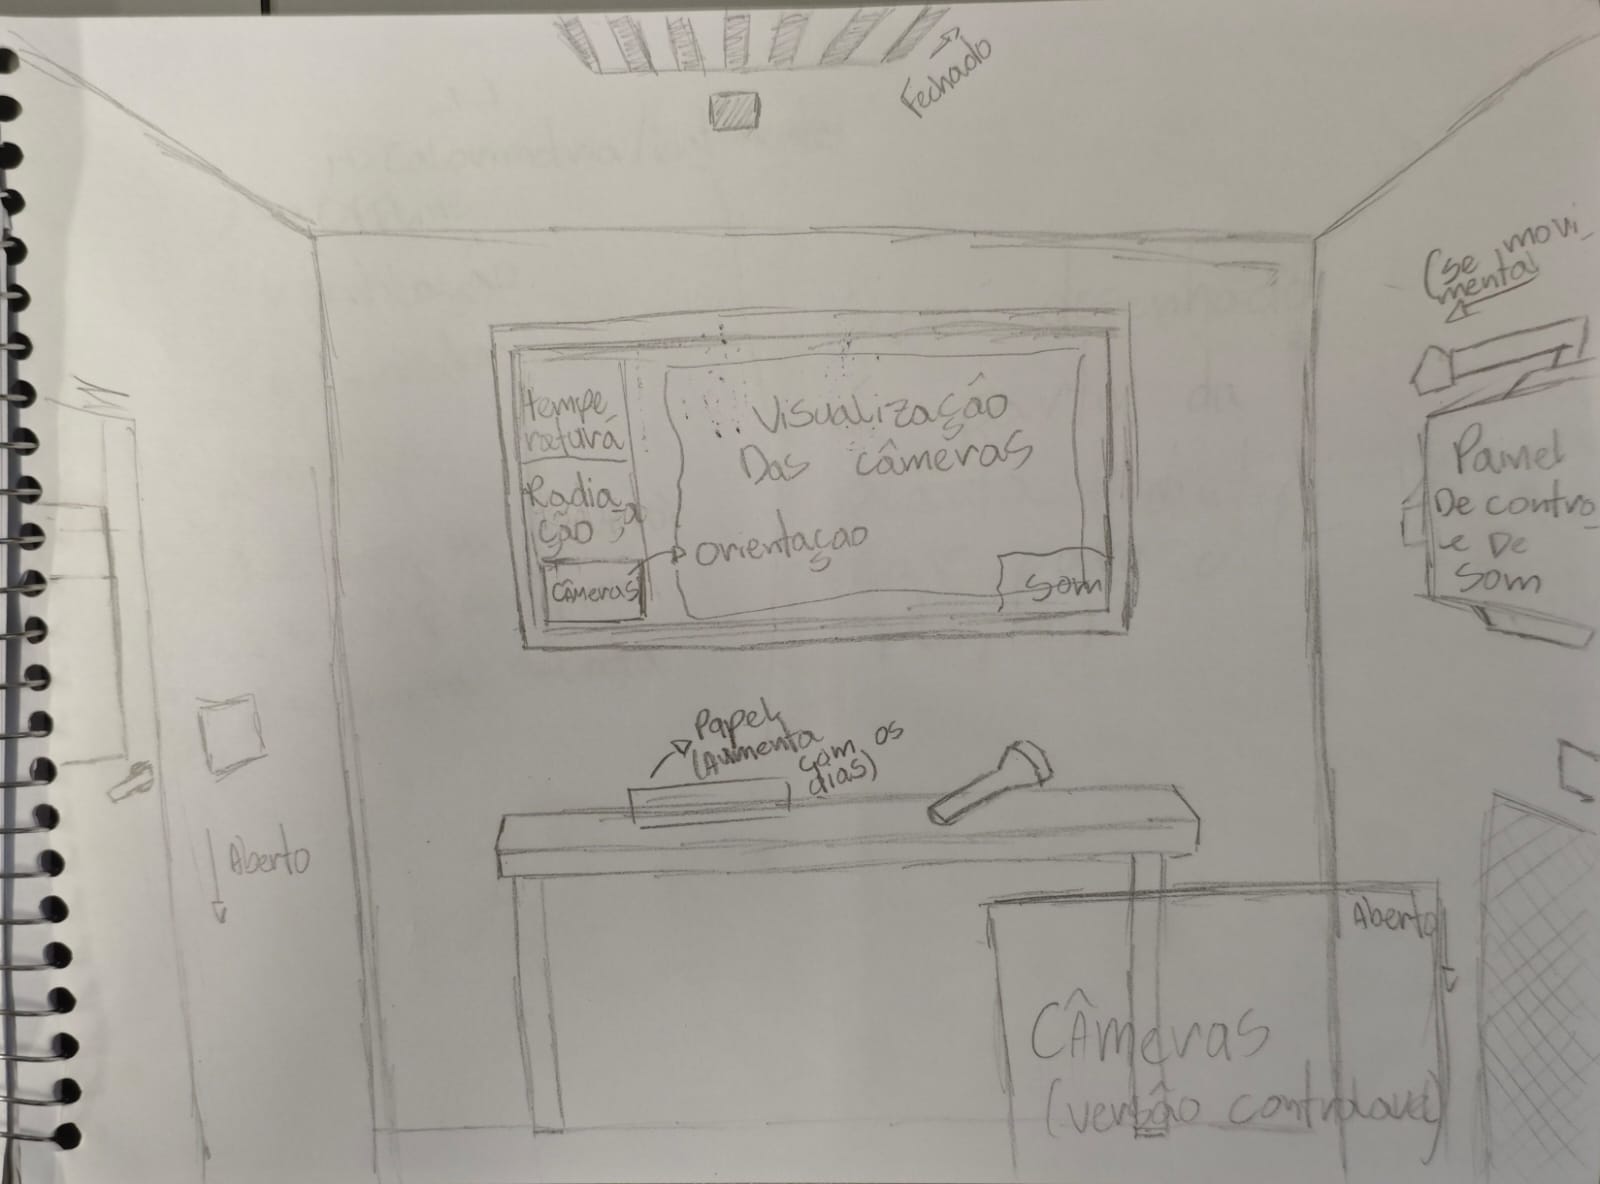 Fechado
(se movi-
mental
Tempe-
ratura
Radia-
ção
CÂmeras
Visualização
Das câmeras
orientaçao
Som
Painel
De contro-
le De
Som
Papel
(Aumenta
com os
dias)
Aberto
Aberto
CÂmeras
(versão controlavel)